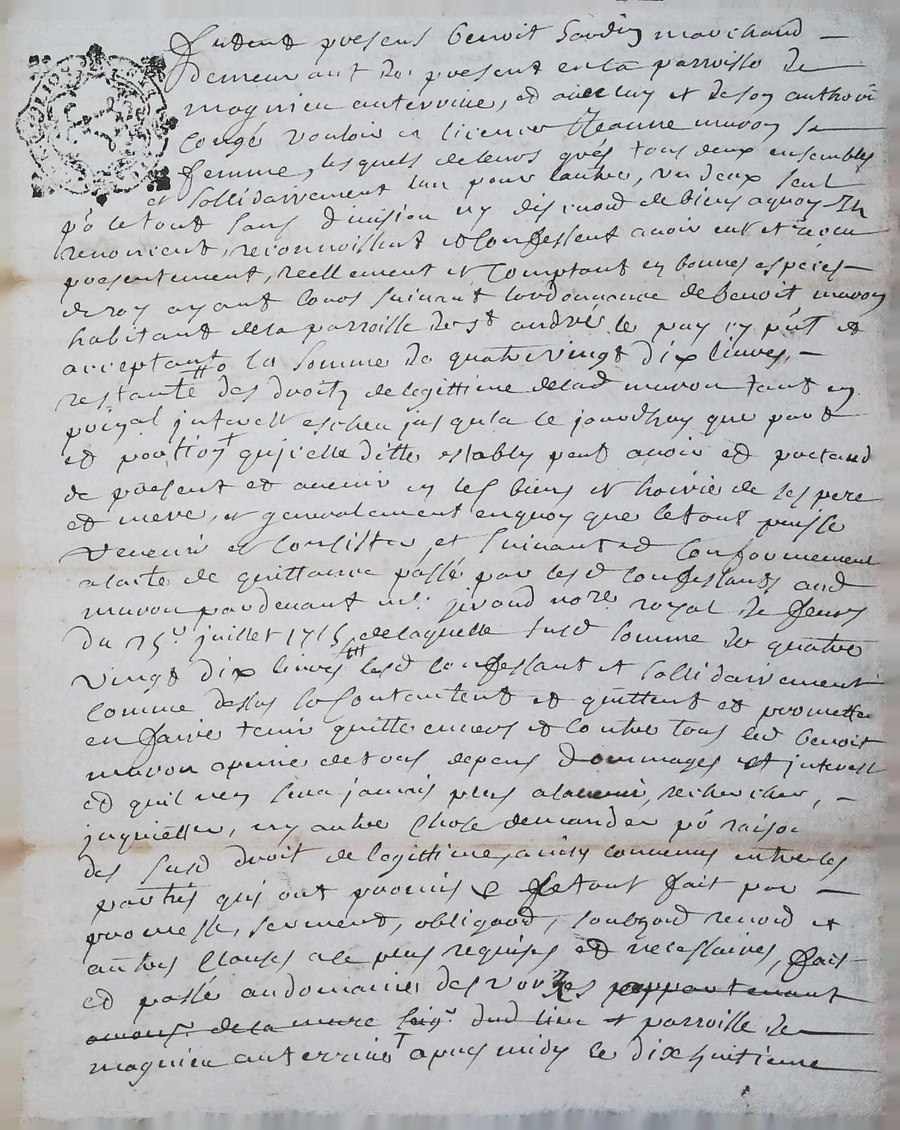 furent presens benoit Sardin marchand –
demeurant de present en la parroisse de
magnieu auterive, et avec luy et de son authori
congé vouloir et licence Jeanne mavon sa
femme, lesquels de leurs grés tous deux ensembles
et sollidairement l'un pour l'autre, un deux seul
po le tout sans division ny discuon de biens a quoy ils
renoncent, reconnoissent et confessent avoir eut et receu
presentement, reellement et comptant en bonnes especes –
de roy ayant cours suivant l'ordonnance de benoit mavon
habitant de la parroisse de st andré le puy cy pnt et
acceptant la somme de quatre vingt dix livres, –
restante des droits de legittime de lad mavon tant en
prinpal interest escheu jusqu'a ce jourdhuy que part
et portion qu'icelle ditte establÿ peut avoir et pretend
de present et avenir en les biens et hoirie de ses pere
et mere, et generalement en quoy que le tout puisse
venir et consister et suivant et conformement
a l'acte de quittance passé par lesd confessants aud
mavon pardevant me giraud nore royal de feurs
du 25e juillet 1715 de laquelle susd somme de quatre
vingt dix livres lesd confessant et sollidairement
comme dessus se contentent et quittent et promettent
en faire tenir quitte envers et contre tous led benoit
mavon a peine de tous depens dommages et interest
et qu'il n'en sera jamais plus a l'avenir rechercher, –
inquietter, ny autre chose demander po raison
des susd droit de legittime, ainsy convenus entre les
partiés qui ont promis &c le tout fait par –
promesse, serment, obligaōn, soubzōn renoōn et
autres clauses a ce plus requises et necessaires, fait
et passé au domaine des vorzes appartenant
a mons.r de la mure seig.r dud lieu et parroisse de
magnieu auterive apres midy le dix huitieme